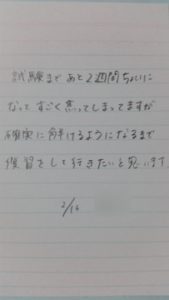 試験まであと2週間ちょいに
なってすごく焦ってしまってますが
確実に解けるようになるまで
復習をして行きたいと思います
2/16